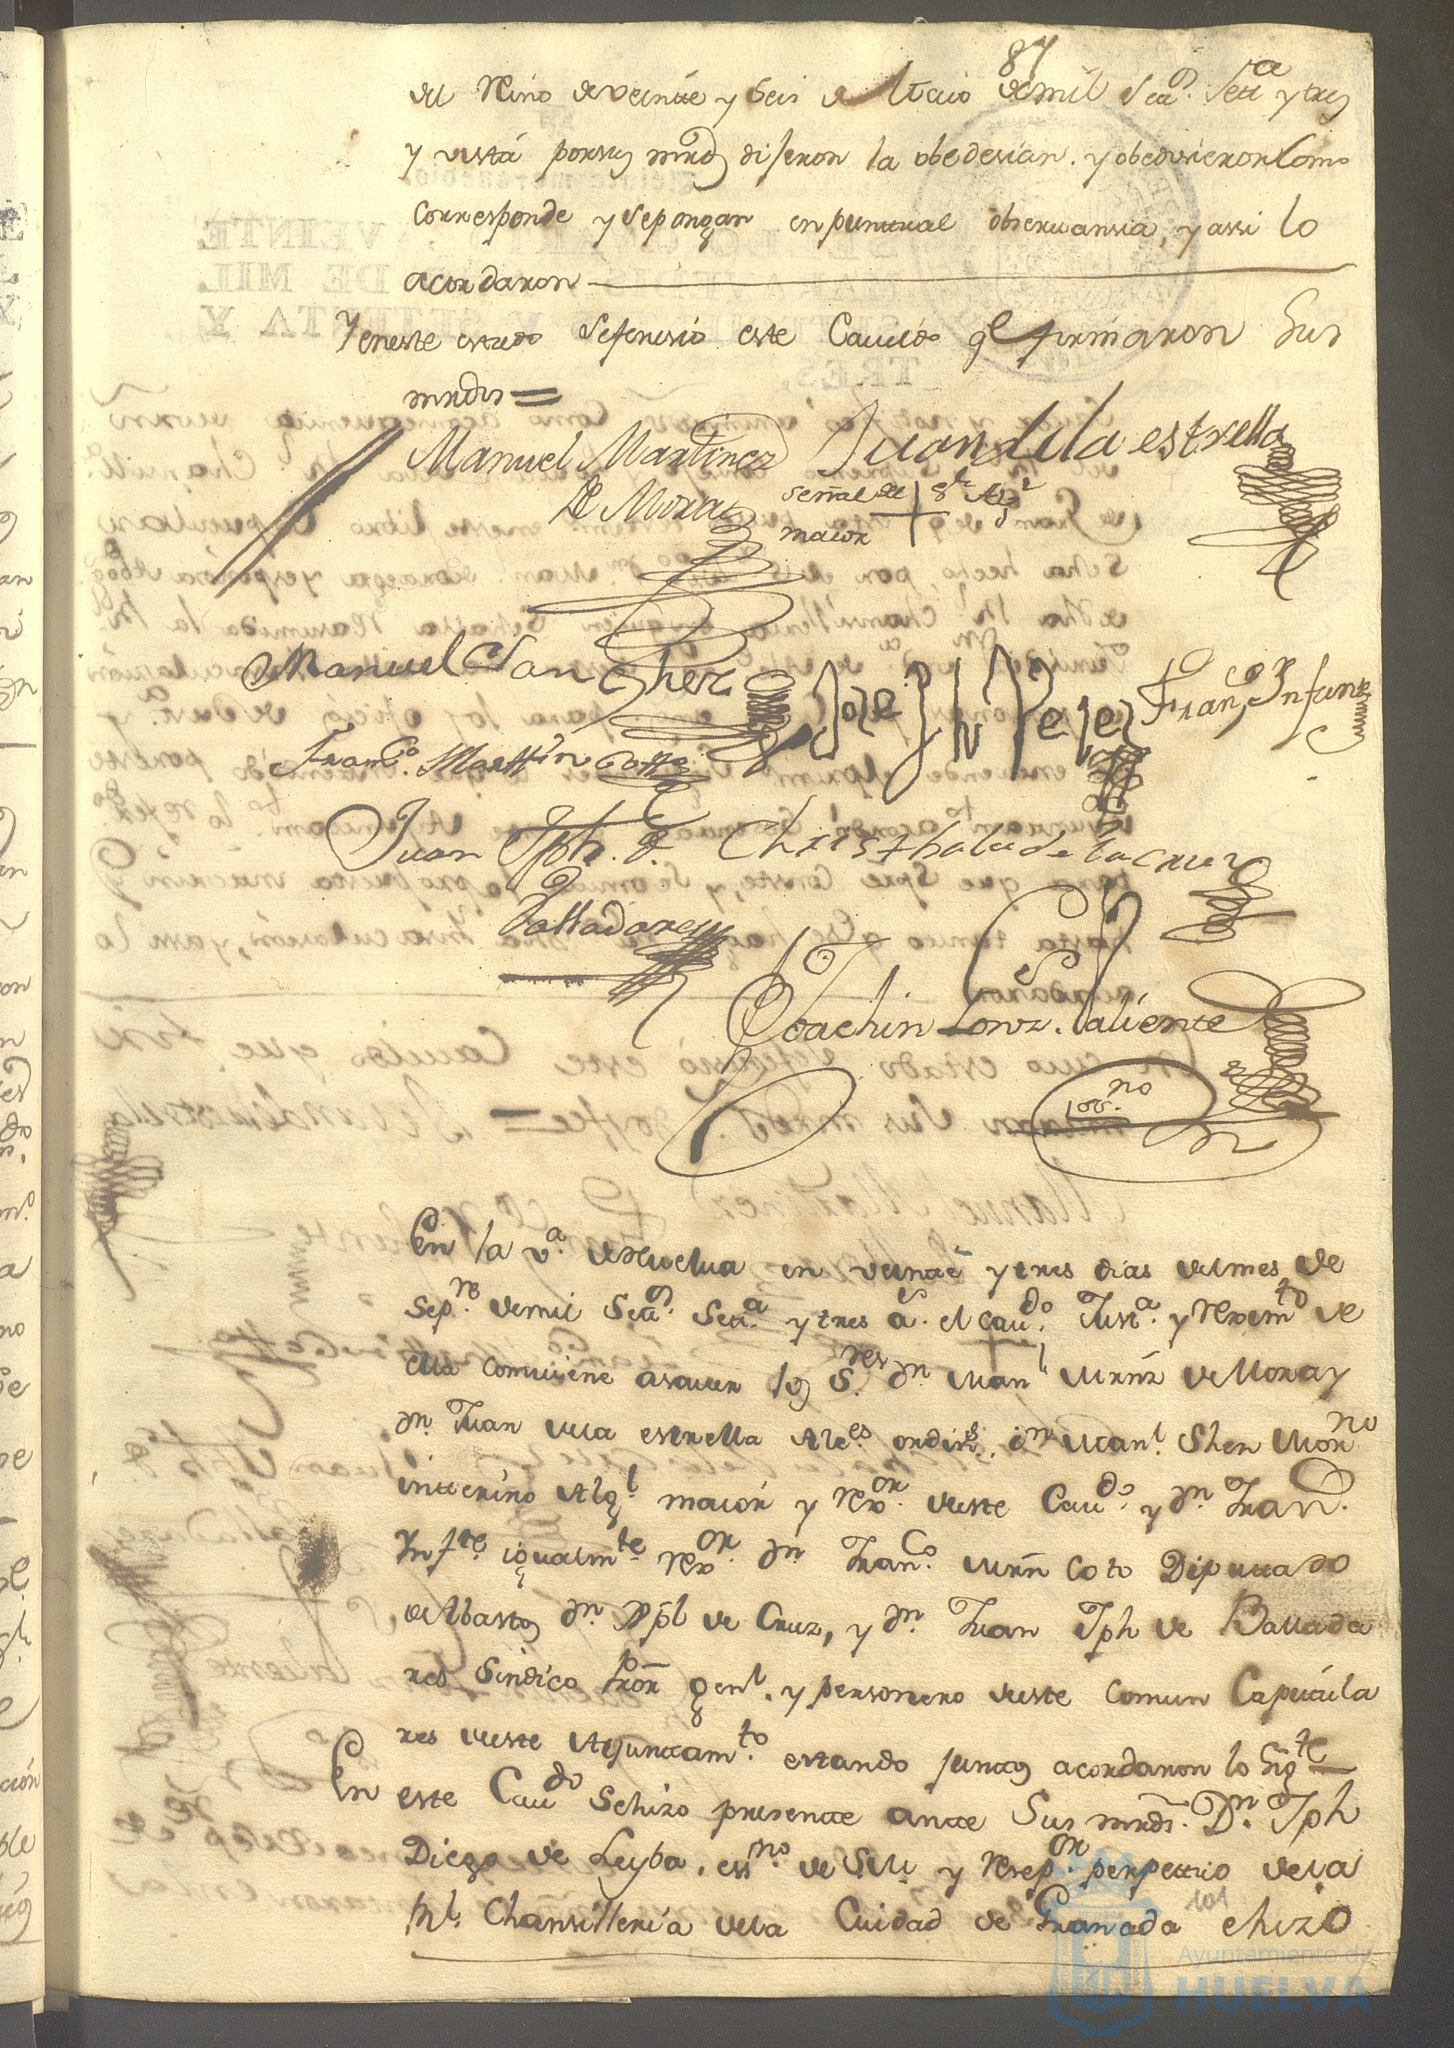 87
del Reino de veinte y seis de Maio de mil setts. setta. y tres
y vista por sus mrds. dijeron la obedesian. y obedesieron Como
Corresponde y se pongan en puntual observansia, y assi lo
acordaron
Y en este estado se fenesio este Cauildo qe. firmaron Sus
mrdes =
Manuel Martinez
de Mora
Juan de la estrella
señal del + Algl.
maior
Manuel Sanchez
Jose Ph Perez
Franco. Infante
Franco. Martin Cotto
Juan Jph. d.
Valladares
Christhobal de la Cruz
Joachin Gonz. Valiente
esno.
En la va. de Huelva en veinte y tres dias del mes de
Sepre. de mil Sets. Seta. y tres as. el Caudo. Justa. y Reximto. de
ella comviene asauer los Sres. Dn. Manl. Mrnz de Mora y
Dn. Juan de la estrella Alces. ordins. Dn. Manl. Shen Morno
interino Algl. maior y Rexor. deste Caudo. y Dn. Fran.
Infte. igualmte. Rexor. Dn. Franco. Mrn Coto Diputtado
de Abastos Dn. Xpl de Cruz, y Dn. Juan Jph de Ballada
res Sindico Pror genl. y personero deste Comun Capitula
res deste Ayuntamto. estando juntos acordaron lo sigte
En este Caudo Se hizo presente ante Sus mrds. Dn. Jph
Diego de Leyba. essno. de S M y Resepor. perpettuo de la
Rl. Chansilleria de la Ciudad de Granada e hizo
101
Ayuntamiento de
HUELVA